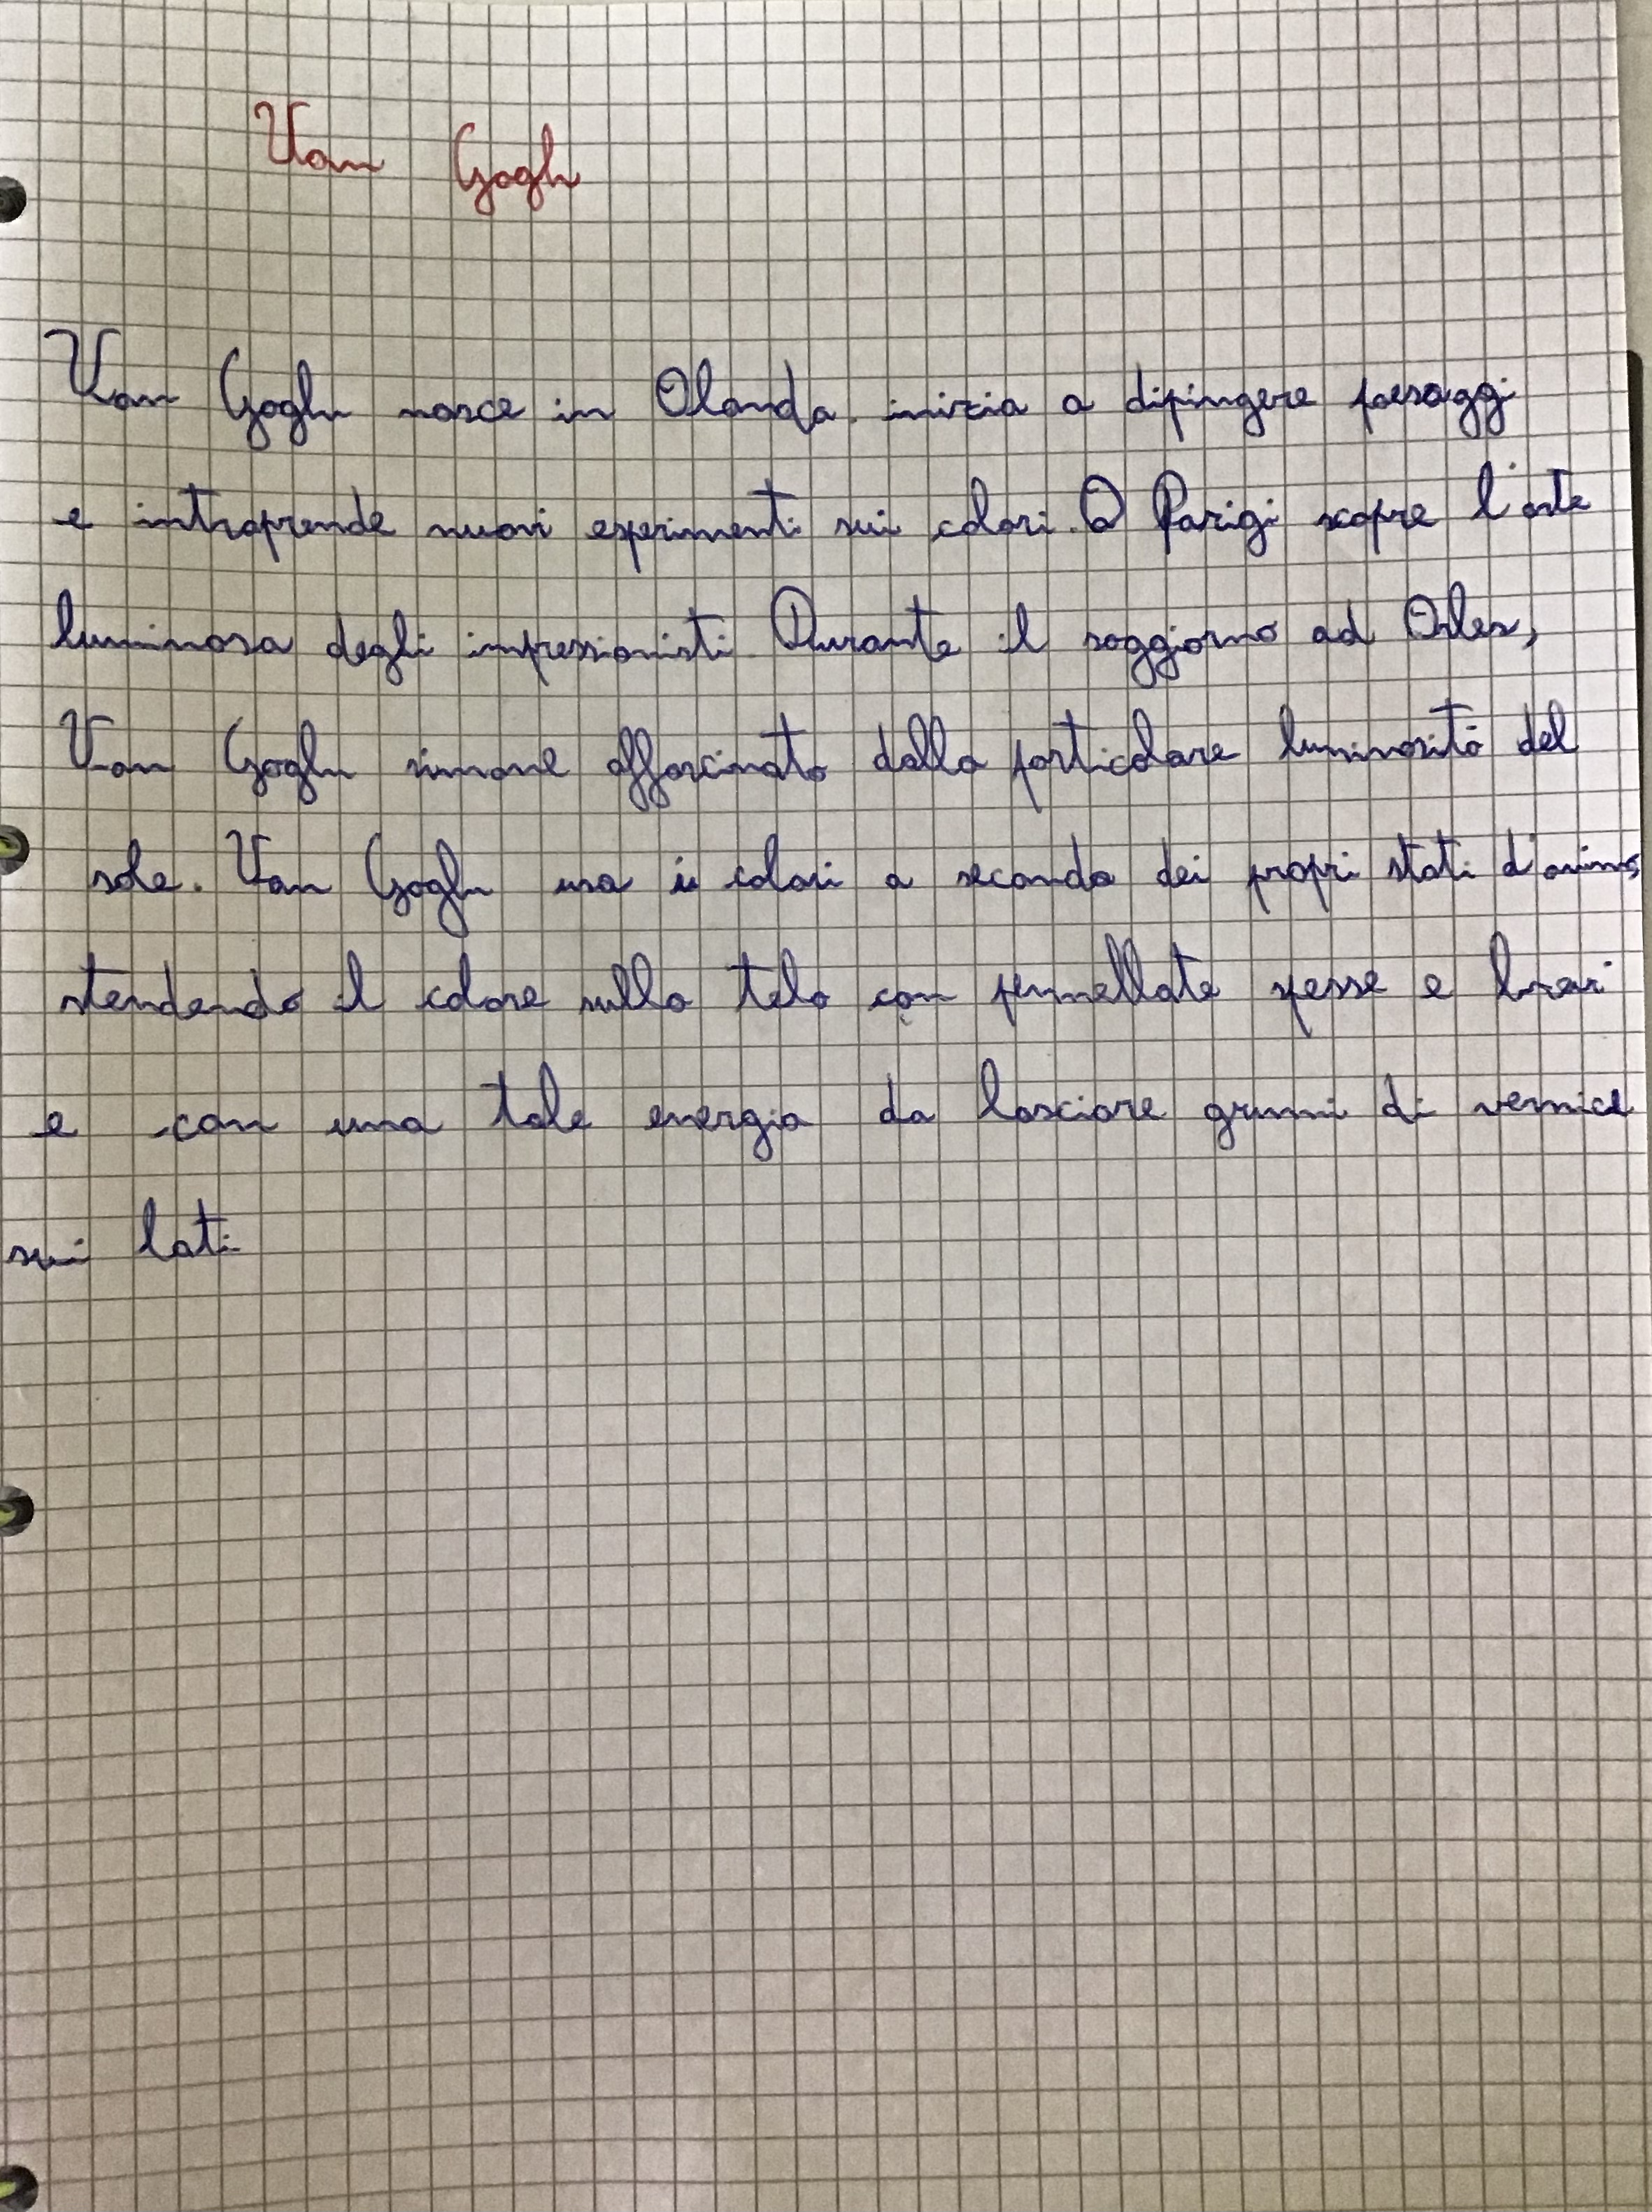 Van Gogh
Van Gogh nasce in Olanda. inizia a dipingere paesaggi
e intraprende nuovi esperimenti sui colori. A Parigi scopre l'arte
luminosa degli impressionisti. Durante il soggiorno ad Arles,
Van Gogh rimane affascinato dalla particolare luminosità del
sole. Van Gogh usa i colori a seconda dei propri stati d'animo
stendendo il colore sulla tela con pennellate spesse e brevi
e con una tale energia da lasciare grumi di vernice
sui lati